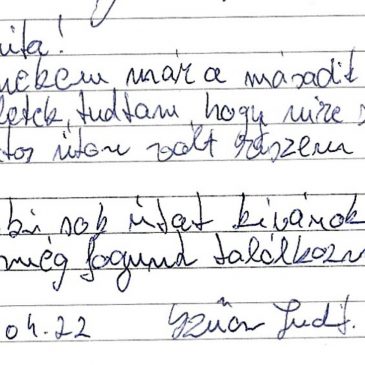 ita!
nekem már a másadit
letek, tudtam, hogy mire s
tos úton volt részem
bi sok útat kívánok
még fogunk találkozn
04.22 Szűcs Judit.